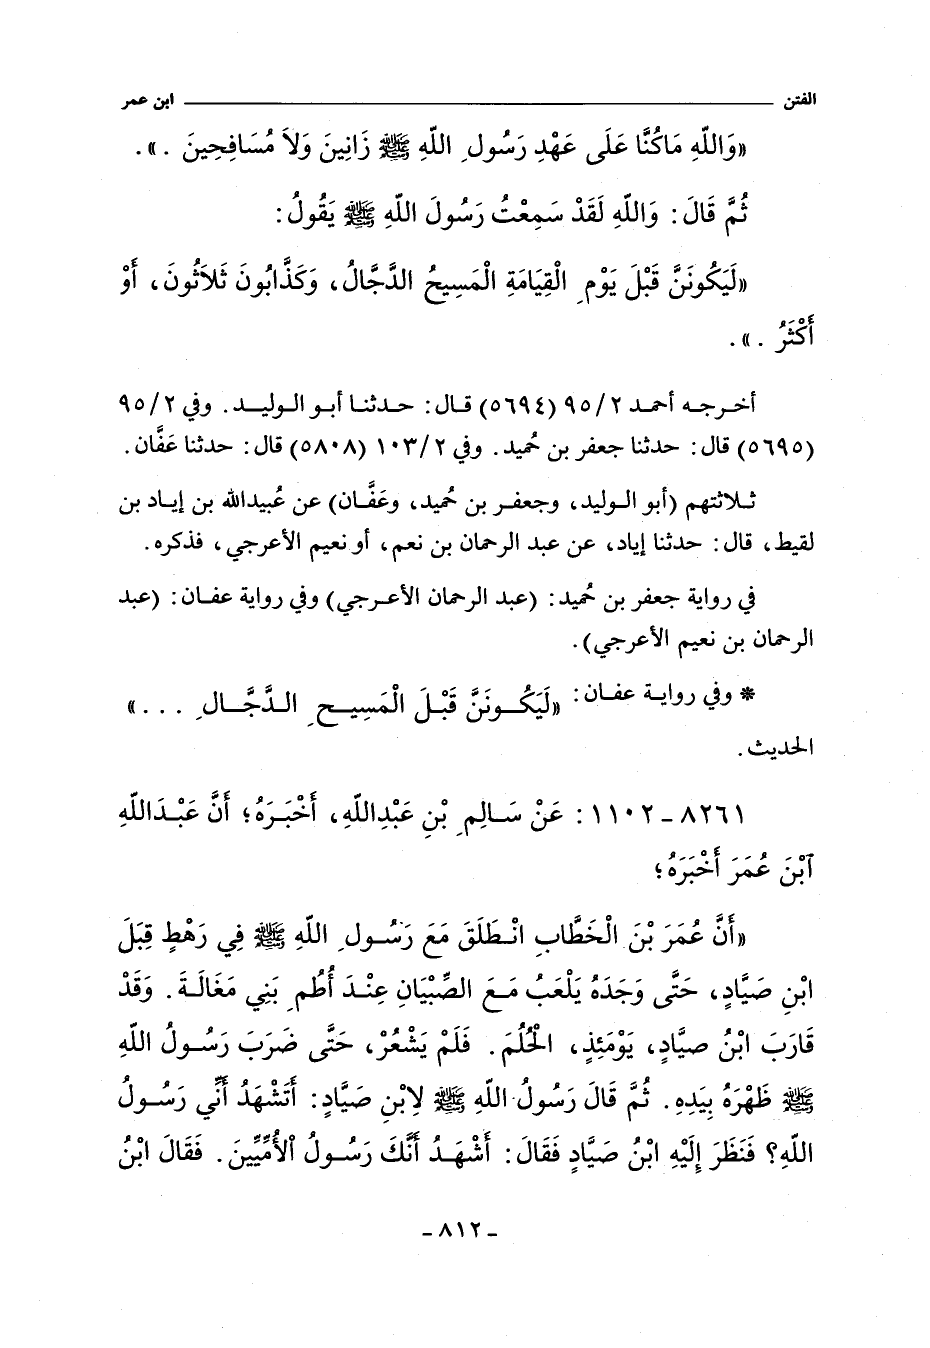 الفتن ــــــــــــــــــــ ابن عمر
«وَاللّهِ مَاكُنَّا عَلَى عَهْدِ رَسُولِ اللّهِ ﷺ زَانِينَ وَلاَ مُسَافِحِينَ .» .
ثُمَّ قَالَ : وَاللّهِ لَقَدْ سَمِعْتُ رَسُولَ اللّهِ ﷺ يَقُولُ :
«لَيَكُونَنَّ قَبْلَ يَوْمِ الْقِيَامَةِ الْمَسِيحُ الدَّجَّالُ ، وَكَذَّابُونَ ثَلاَثُونَ ، أَوْ
أَكْثَرُ .» .
أخرجه أحمد ٢/ ٩٥ (٥٦٩٤) قال : حدثنا أبو الوليد . وفي ٢/ ٩٥
(٥٦٩٥) قال : حدثنا جعفر بن حُميد . وفي ٢/ ١٠٣ (٥٨٠٨) قال : حدثنا عَفَّان .
ثلاثتهم (أبو الوليد ، وجعفر بن حُميد ، وعَفَّان) عن عُبيدالله بن إياد بن
لقيط ، قال : حدثنا إياد ، عن عبد الرحمان بن نعم ، أو نعيم الأعرجي ، فذكره .
في رواية جعفر بن حُميد : (عبد الرحمان الأعرجي) وفي رواية عفان : (عبد
الرحمان بن نعيم الأعرجي) .
* وفي رواية عفان : «لَيَكُونَنَّ قَبْلَ الْمَسِيحِ الدَّجَّالِ . . .»
الحديث .
٨٢٦١ ـ ١١٠٢ : عَنْ سَالِمِ بْنِ عَبْدِاللّهِ ، أَخْبَرَهُ ؛ أَنَّ عَبْدَاللّهِ
آبْنَ عُمَرَ أَخْبَرَهُ ؛
«أَنَّ عُمَرَ بْنَ الْخَطَّابِ انْطَلَقَ مَعَ رَسُولِ اللّهِ ﷺ فِي رَهْطٍ قِبَلَ
ابْنِ صَيَّادٍ ، حَتَّى وَجَدَهُ يَلْعَبُ مَعَ الصِّبْيَانِ عِنْدَ أُطُمِ بَنِي مَغَالَةَ . وَقَدْ
قَارَبَ ابْنُ صيَّادٍ ، يَوْمَئِذٍ ، الْحُلُمَ . فَلَمْ يَشْعُرْ ، حَتَّى ضَرَبَ رَسُولُ اللّهِ
ﷺ ظَهْرَهُ بِيَدِهِ . ثُمَّ قَالَ رَسُولُ اللّهِ ﷺ لاِبْنِ صَيَّادٍ : أَتَشْهَدُ أَنِّي رَسُولُ
اللّهِ؟ فَنَظَرَ إِلَيْهِ ابْنُ صَيَّادٍ فَقَالَ : أَشْهَدُ أَنَّكَ رَسُولُ الْأُمِّيِّينَ . فَقَالَ ابْنُ
ـ ٨١٢ ـ